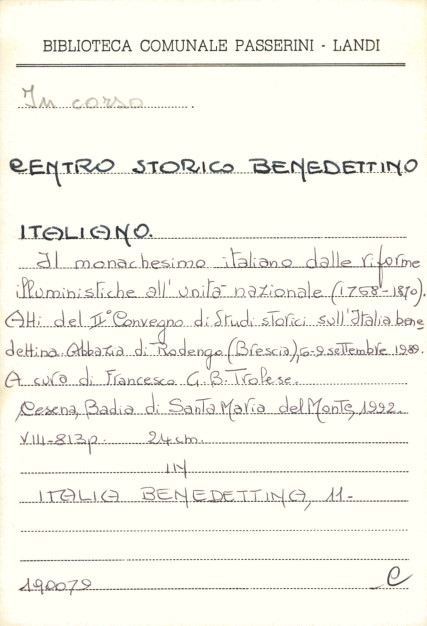 BIBLIOTECA COMUNALE PASSERINI - LANDI
In corso
CENTRO STORICO BENEDETTINO
ITALIANO.
Il monachesimo italiano dalle riforme
illuministiche all'unità nazionale (1768-1870).
Atti del II° Convegno di Studi storici sull'Italia bene
dettina. Abbazia di Rodengo (Brescia), 6-9 settembre 1989.
A cura di Francesco G.B. Trolese.
Cesena, Badia di Santa Maria del Monte, 1992.
VIII-813 p. 24 cm.
IN
ITALIA BENEDETTINA, 11-
190079 C